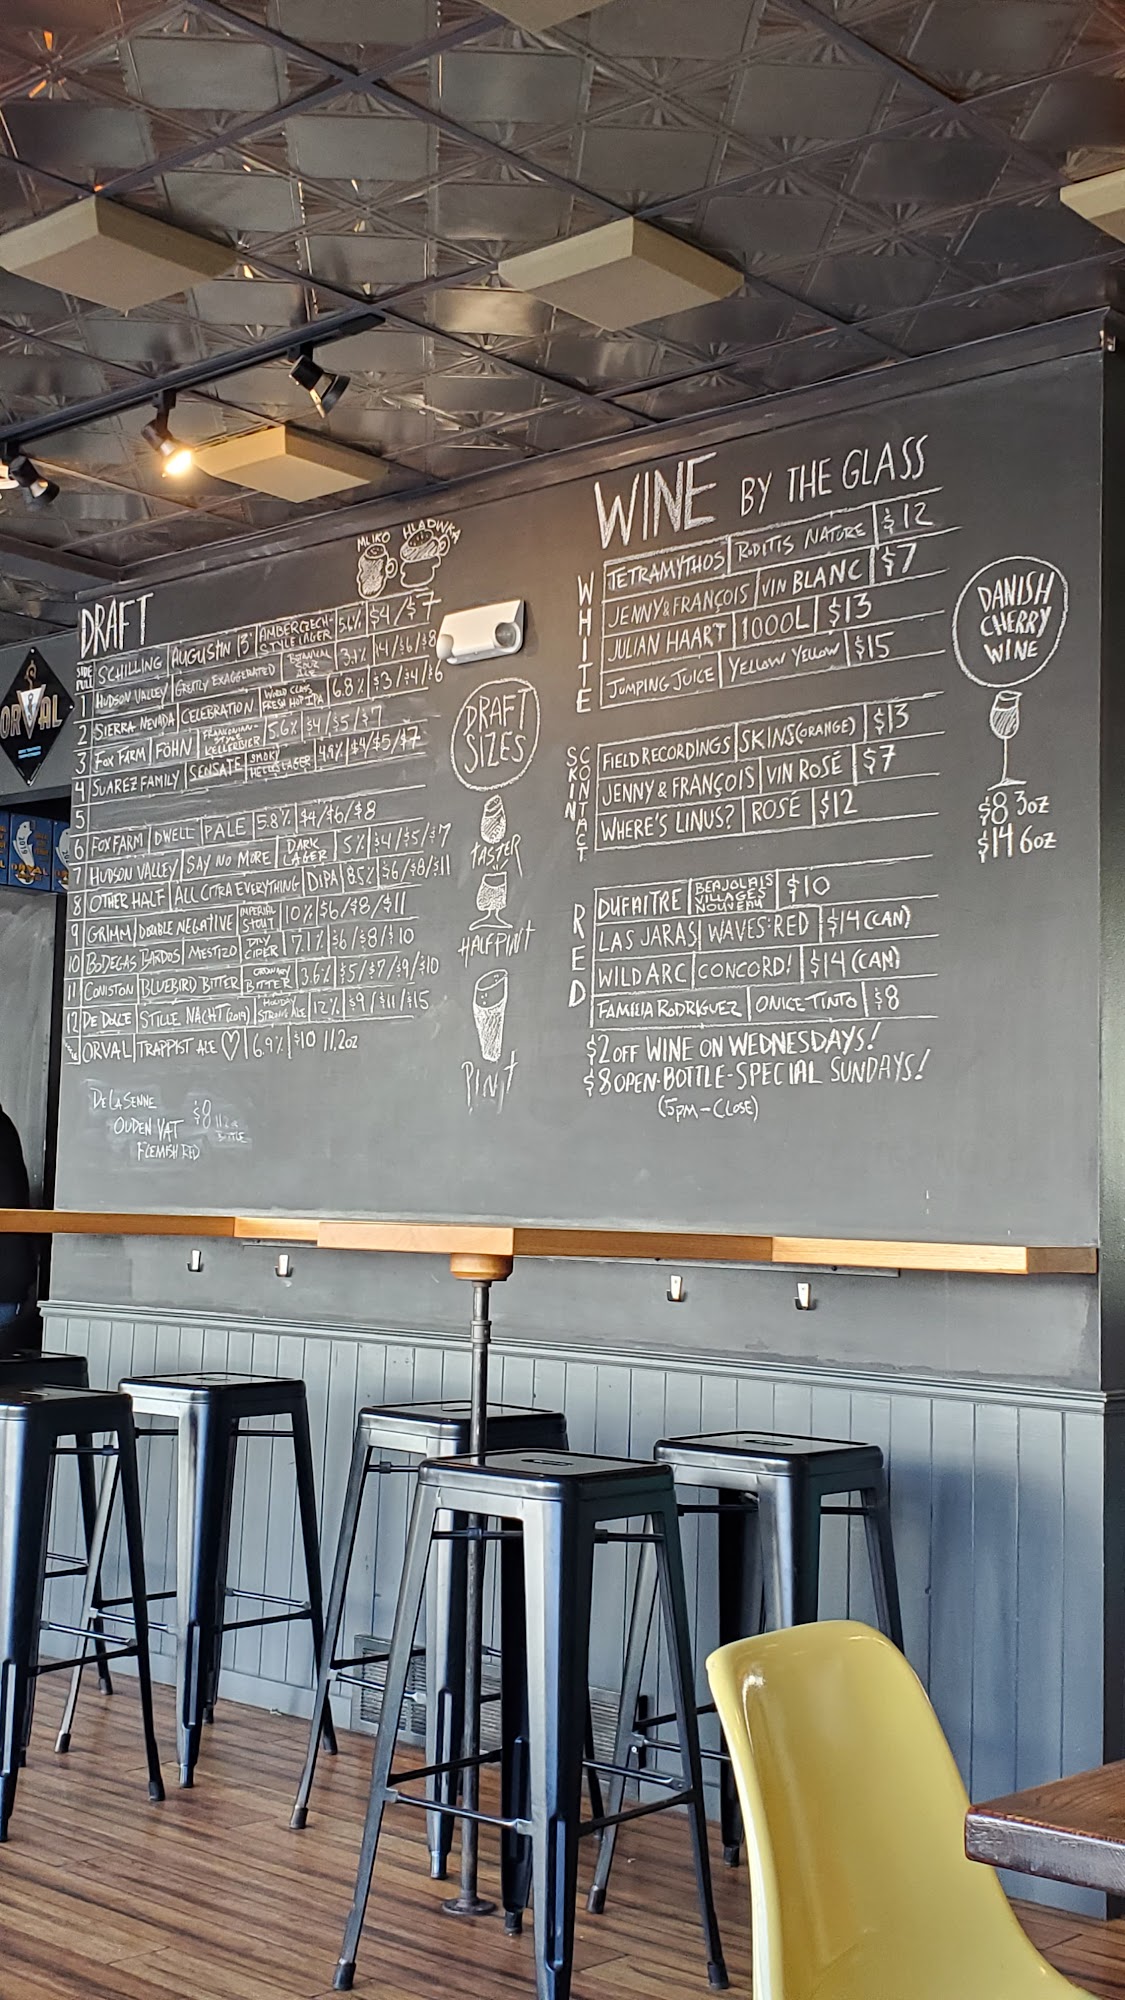 MLIKO HLADINKA
DRAFT
SIDE PULL SCHILLING AUGUSTIN 13° AMBER CZECH-STYLE LAGER 5.6% $4/$7
1 HUDSON VALLEY GREATLY EXAGGERATED BOTANICAL SOUR ALE $4/$6/$8
2 SIERRA NEVADA CELEBRATION WORLD CLASS FRESH HOP IPA 6.8% $3/$4/$6
3 FOX FARM FÖHN FRANCONIAN-STYLE KELLERBIER 5.6% $4/$5/$7
4 SUAREZ FAMILY SENSATE HELLES LAGER 4.9% $4/$5/$7
5
6 FOX FARM DWELL PALE 5.8% $4/$6/$8
7 HUDSON VALLEY SAY NO MORE DARK LAGER 5% $4/$5/$7
8 OTHER HALF ALL CITRA EVERYTHING DIPA 8.5% $6/$8/$11
9 GRIMM DOUBLE NEGATIVE IMPERIAL STOUT 10% $6/$8/$11
10 BODEGAS BARDOS MESTIZO DRY CIDER 7.1% $6/$8/$10
11 CONISTON BLUEBIRD BITTER ORDINARY BITTER 3.6% $5/$7/$9/$10
12 DE DOLLE STILLE NACHT (2019) HOLIDAY STRONG ALE 12% $9/$11/$15
ORVAL TRAPPIST ALE ♡ 6.9% $10 11.2oz
DE LA SENNE
OUDEN VAT $8 11.2oz
FLEMISH RED BOTTLE
DRAFT
SIZES
TASTER
HALFPINT
PINT
WINE BY THE GLASS
WHITE
TETRAMYTHOS RODITIS NATURE $12
JENNY & FRANÇOIS VIN BLANC $7
JULIAN HAART 1000L $13
JUMPING JUICE YELLOW YELLOW $15
SKIN CONTACT
FIELD RECORDINGS SKINS (ORANGE) $13
JENNY & FRANÇOIS VIN ROSÉ $7
WHERE'S LINUS? ROSÉ $12
RED
DUFAITRE BEAJOLAIS VILLAGES NOUVEAU $10
LAS JARAS WAVES·RED $14 (CAN)
WILD ARC CONCORD! $14 (CAN)
FAMILIA RODRIGUEZ ONICE TINTO $8
$2 OFF WINE ON WEDNESDAYS!
$8 OPEN-BOTTLE-SPECIAL SUNDAYS!
(5PM-CLOSE)
DANISH
CHERRY
WINE
$8 3oz
$14 6oz
ORVAL